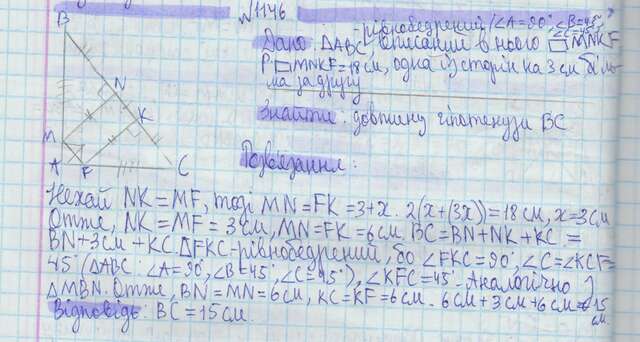 №1146
- рівнобедрений (∠A=90°, ∠B=45°,
∠C=45°)
Дано: ΔABC вписаний в нього □ MNKF
P□MNKF=18 см, одна із сторін на 3 см біль-
ша за другу
Знайти: довжину гіпотенузи BC
Розв'язання:
B
N
K
M
A
F
C
Нехай NK=MF, тоді MN=FK=3+x. 2(x+(3x))=18 см, x=3 см
Отже, NK=MF=3 см, MN=FK=6 см. BC=BN+NK+KC=
BN+3 см+KC. ΔFKC-рівнобедрений, бо ∠FKC=90°, ∠C=∠KCF=
45° (ΔABC: ∠A=90°, ∠B=45°, ∠C=45°), ∠KFC=45°. Аналогічно і
ΔMBN. Отже, BN=MN=6 см, KC=KF=6 см. 6 см+3 см+6 см=15
см.
Відповідь: BC=15 см.